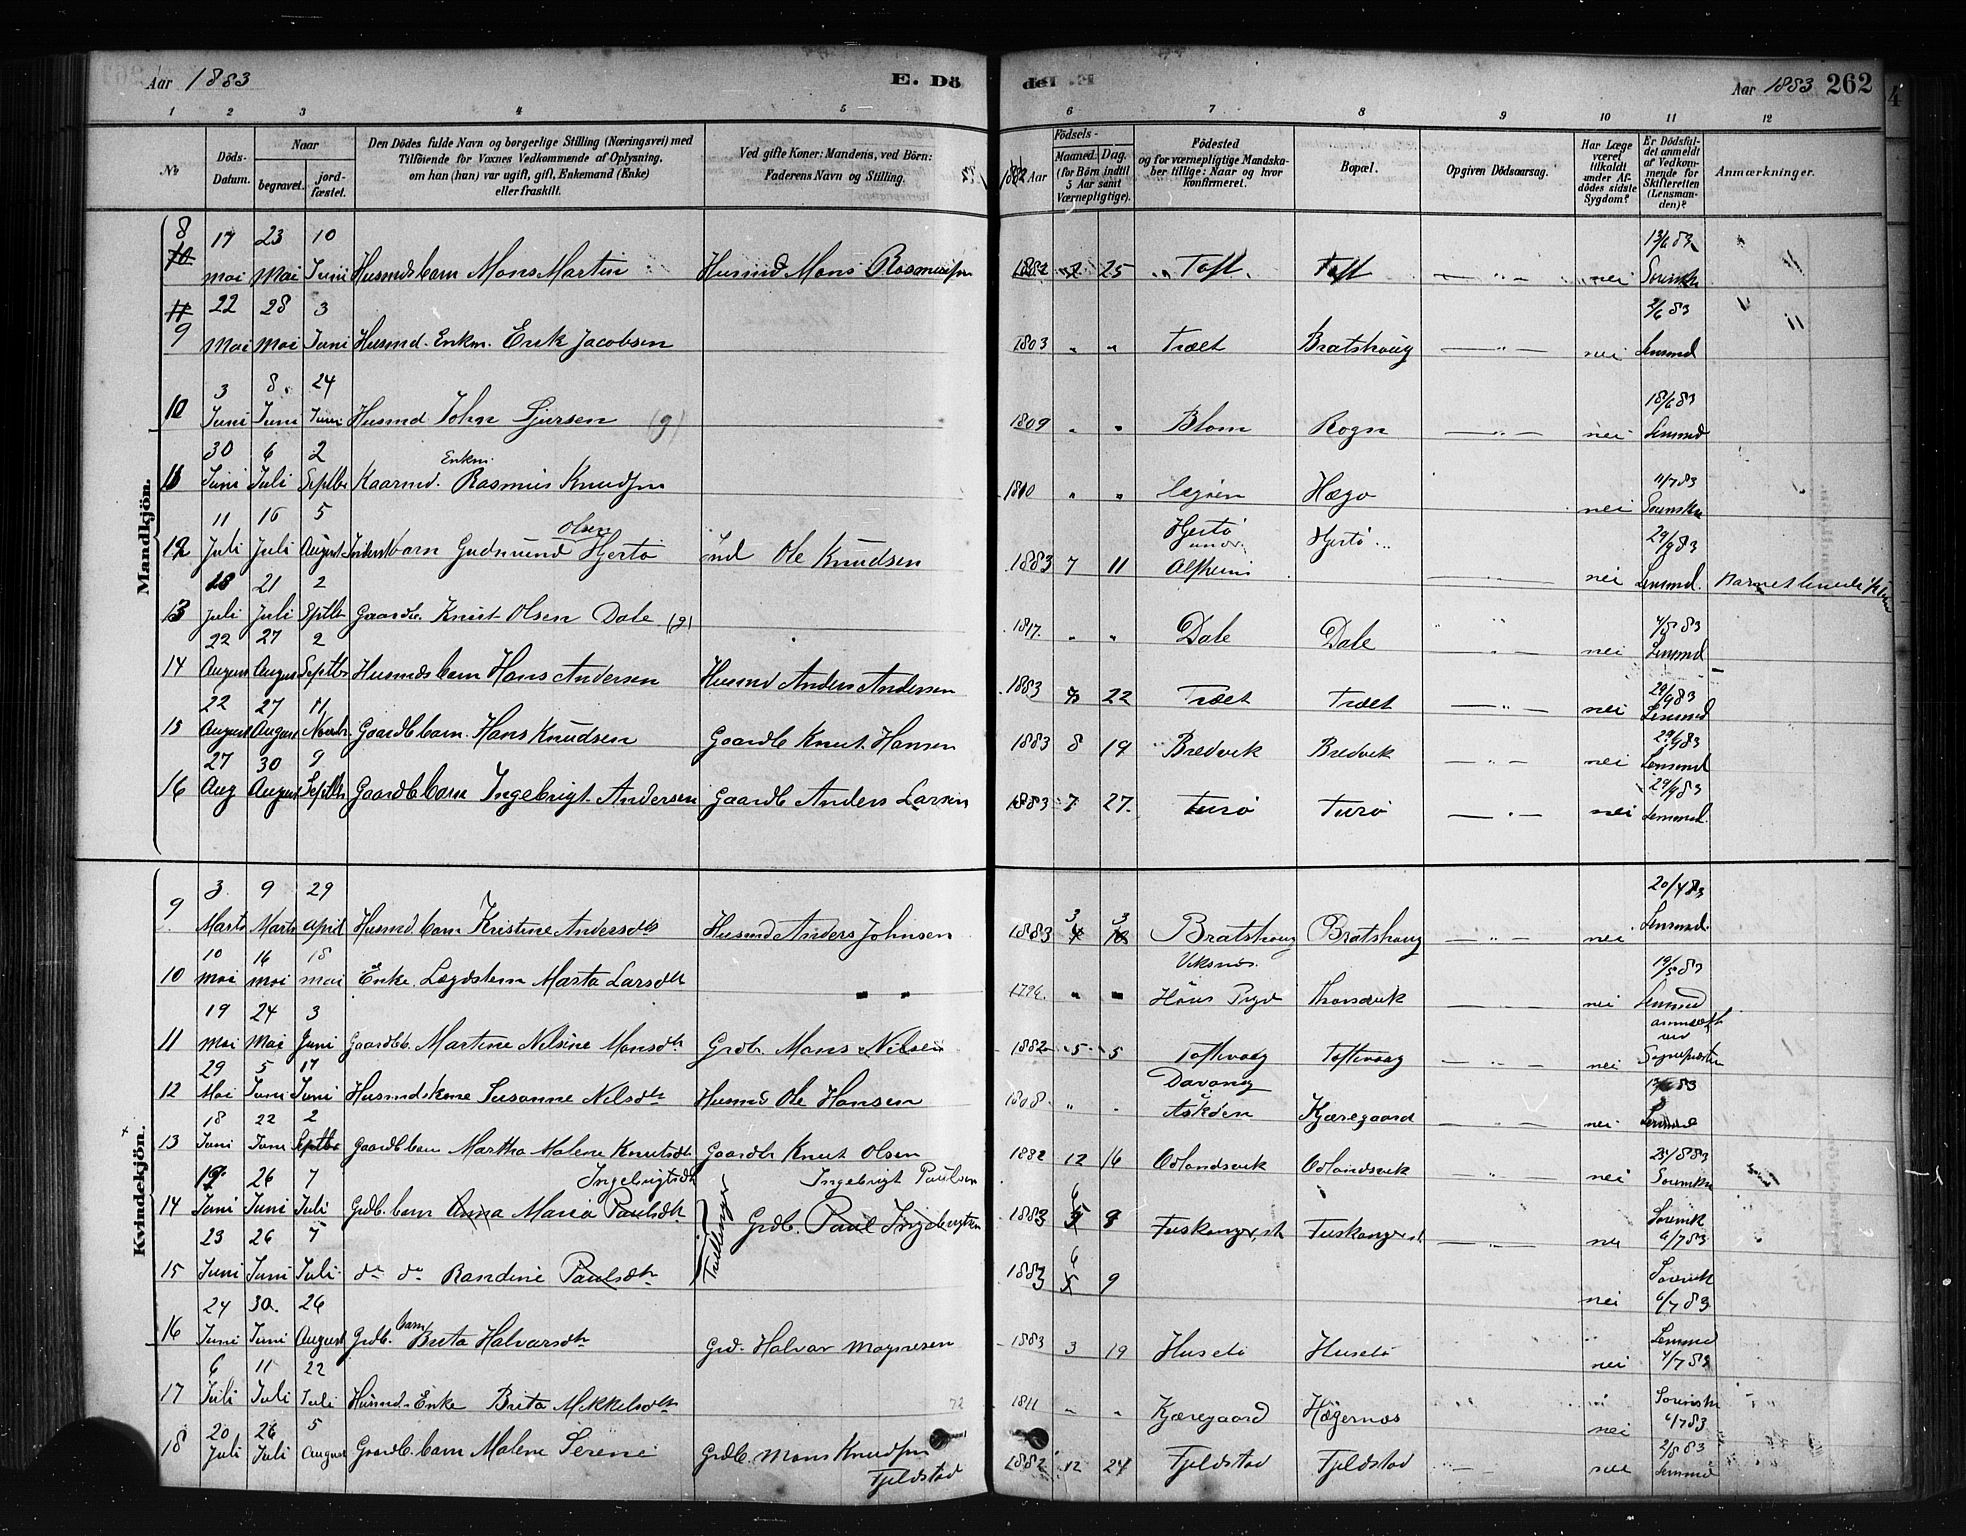 Aar 1883
E. Dö
de1
Aar 1883 262
1 2 3 4 5 6 7 8 9 10 11 12
No
Döds-Datum.
Naar
begravet.
jord-fæstet.
Den Dödes fulde Navn og borgerlige Stilling (Næringsvei) med
Tilföiende for Voxnes Vedkommende af Oplysning,
om han (han) var ugift, gift, Enkemand (Enke)
eller fraskilt.
Ved gifte Koner: Mandens, ved Börn:
Faderens Navn og Stilling.
Födsels-
Aar
Maaned. Dag.
(for Börn indtil
5 Aar samt
Værnepligtige).
Födested
og for værnepligtige Mandska-
ber tillige: Naar og hvor
konfirmeret.
Bopæl.
Opgiven Dödsaarsag.
Har Læge
været
tilkaldt
under Af-
dödes sidste
Sygdom?
Er Dödsfal-
det anmeldt
af Vedkom-
mende for
Skifteretten
(Lensman-
den)?
Anmærkninger.
Mandkjön.
8 17 Mai 23 Mai 10 Juni Husmdsbarn Mons Martin Husmd Mons Rasmussen 1882 25 Toft Toft nei 13/6 83
9 22 Mai 28 Mai 3 Juni Husmd. Enkm. Erik Jacobsen 1803 " " Trælt Bratshoug nei 2/6 83 Lensmd
10 3 Juni 8 Juni 24 Juni Husmd John Sjursen (g) 1809 " " Blom Rogn nei 18/6 83 Lensmd
11 30 Juni 6 Juli 2 Septbr Kaarmd. Enkm. Rasmus Knudsen 1810 " " Hægø nei 11/7 83
12 11 Juli 16 Juli 5 August barn Gudmund Olsen Hjertø Ind Ole Knudsen 1883 7 11 Hjertø under Alfheim Hjertø nei 29/9 83 Lensmd.
13 18 Juli 21 Juli 2 Septbr Gaardb. Knut Olsen Dale (g) 1817. " " Dale Dale nei Lensmd
14 22 August 27 August 2 Septbr Husmdsbarn Hans Andersen Husmd Anders Andersen 1883 22 Trælt Trælt nei 29/9 83 Lensmd
15 22 August 27 August 11 Novbr Gaardbbarn Hans Knudsen Gaardb Knut Hansen 1883 8 19 Bredvik Bredvik nei 29/9 83 Lensmd
16 27 Aug 30 August 9 Septbr Gaardbbarn Ingebrigt Andersen Gaardb Anders Larsen 1883 7 27. Turø Turø nei 29/9 83 Lensmd.
Kvindekjön.
9. 3 Marts 9 Marts 29 April Husmdbarn Kristine Andersdtr Husmd Anders Johnsen 1883 3 3 Bratshoug Bratshoug nei 20/4 83 Lensmd.
10 10 Mai 16 Mai 18 Mai Enke Lægdslem Marta Larsdtr " " " " Viksnæs. nei 19/5 83 Lensmd
11 19 Mai 24 Mai 3 Juni Gaardbb. Martine Nilsine Monsdtr Grdb. Mons Nilsen 1882 5 5 Toftevaag Toftevaag nei
12 29 Mai 5 Juni 17 Juni Husmdskone Susanne Nilsdtr Husmd Ole Hansen 1808. " Davang Askøen Kjæregaard nei
13 18 Juni 22 Juni 2 Septbr Gaardbbarn Martha Malene Knutsdtr Gaardb Knut Olsen 1882 12 16 Odlandsvik Odlandsvik nei
14 19 Juni 26 Juni 7 Juli Grdb. barn Anna Maria Paulsdtr Ingebrigtsdtr Tvillinger Grdb. Paul Ingebrigtsen Ingebrigt Paulsen 1883 6 9 nei 6/7 83
15 23 Juni 26 Juni 7 Juli do do Randine Paulsdtr 1883 6 9 nei 6/7 83
16 24 Juni 30. Juni 26 August Grdb. barn Brita Halvarsdtr Grd. Halvar Magnesen 1883 3 19 Husetø Husetø nei Lensmd 4/7 83
17 6 Juli 11 Juli 22 Juli Husmd. Enke Brita Mikkelsdtr 72 1811 " " Kjæregaard Hægernæs nei
18 20 Juli 26 Juli 5 August Gaardb. barn Malene Serine Grdb. Mons Knudsen Fjeldstad 1882 12 24 Fjeldstad Fjeldstad nei 2/8 83 Lensmd